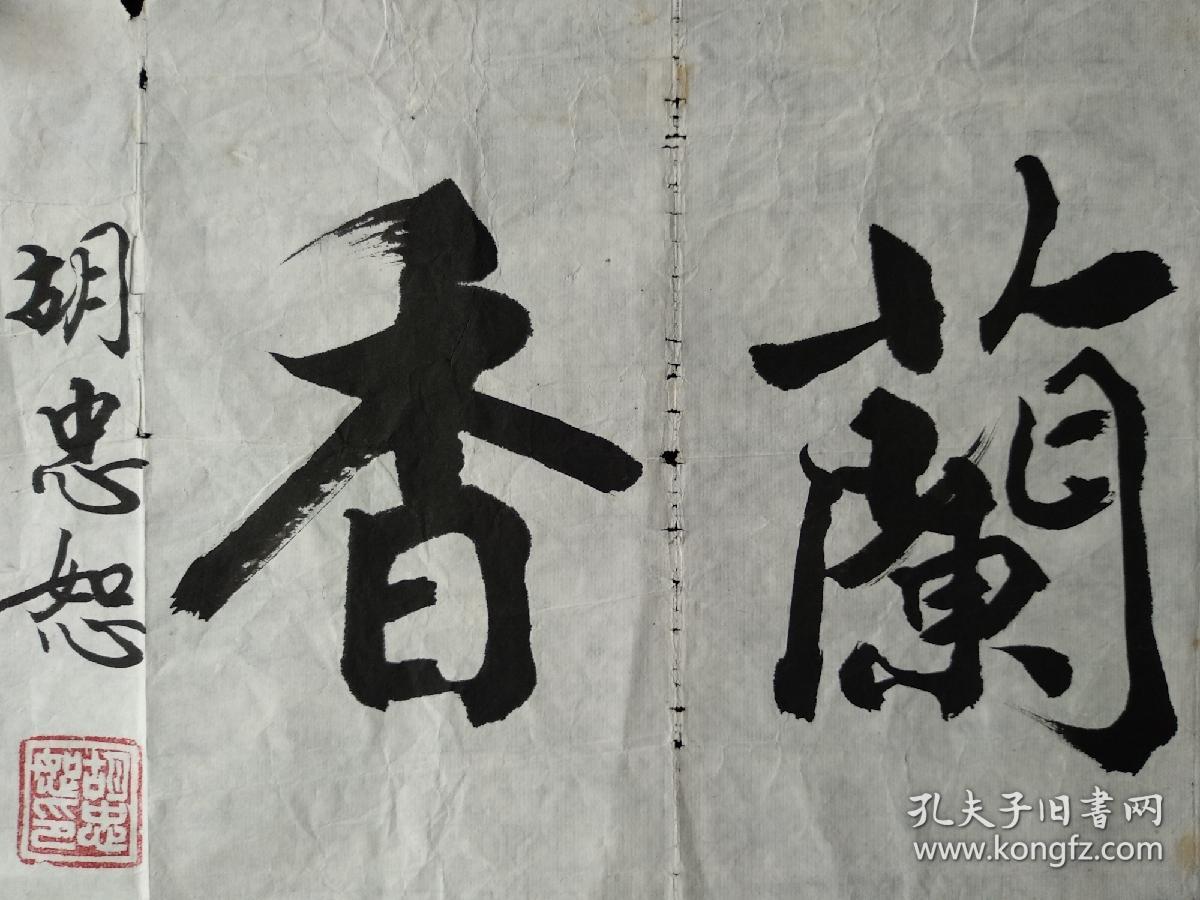 蘭香
胡忠恕
胡忠恕印
孔夫子旧書网
www.kongfz.com